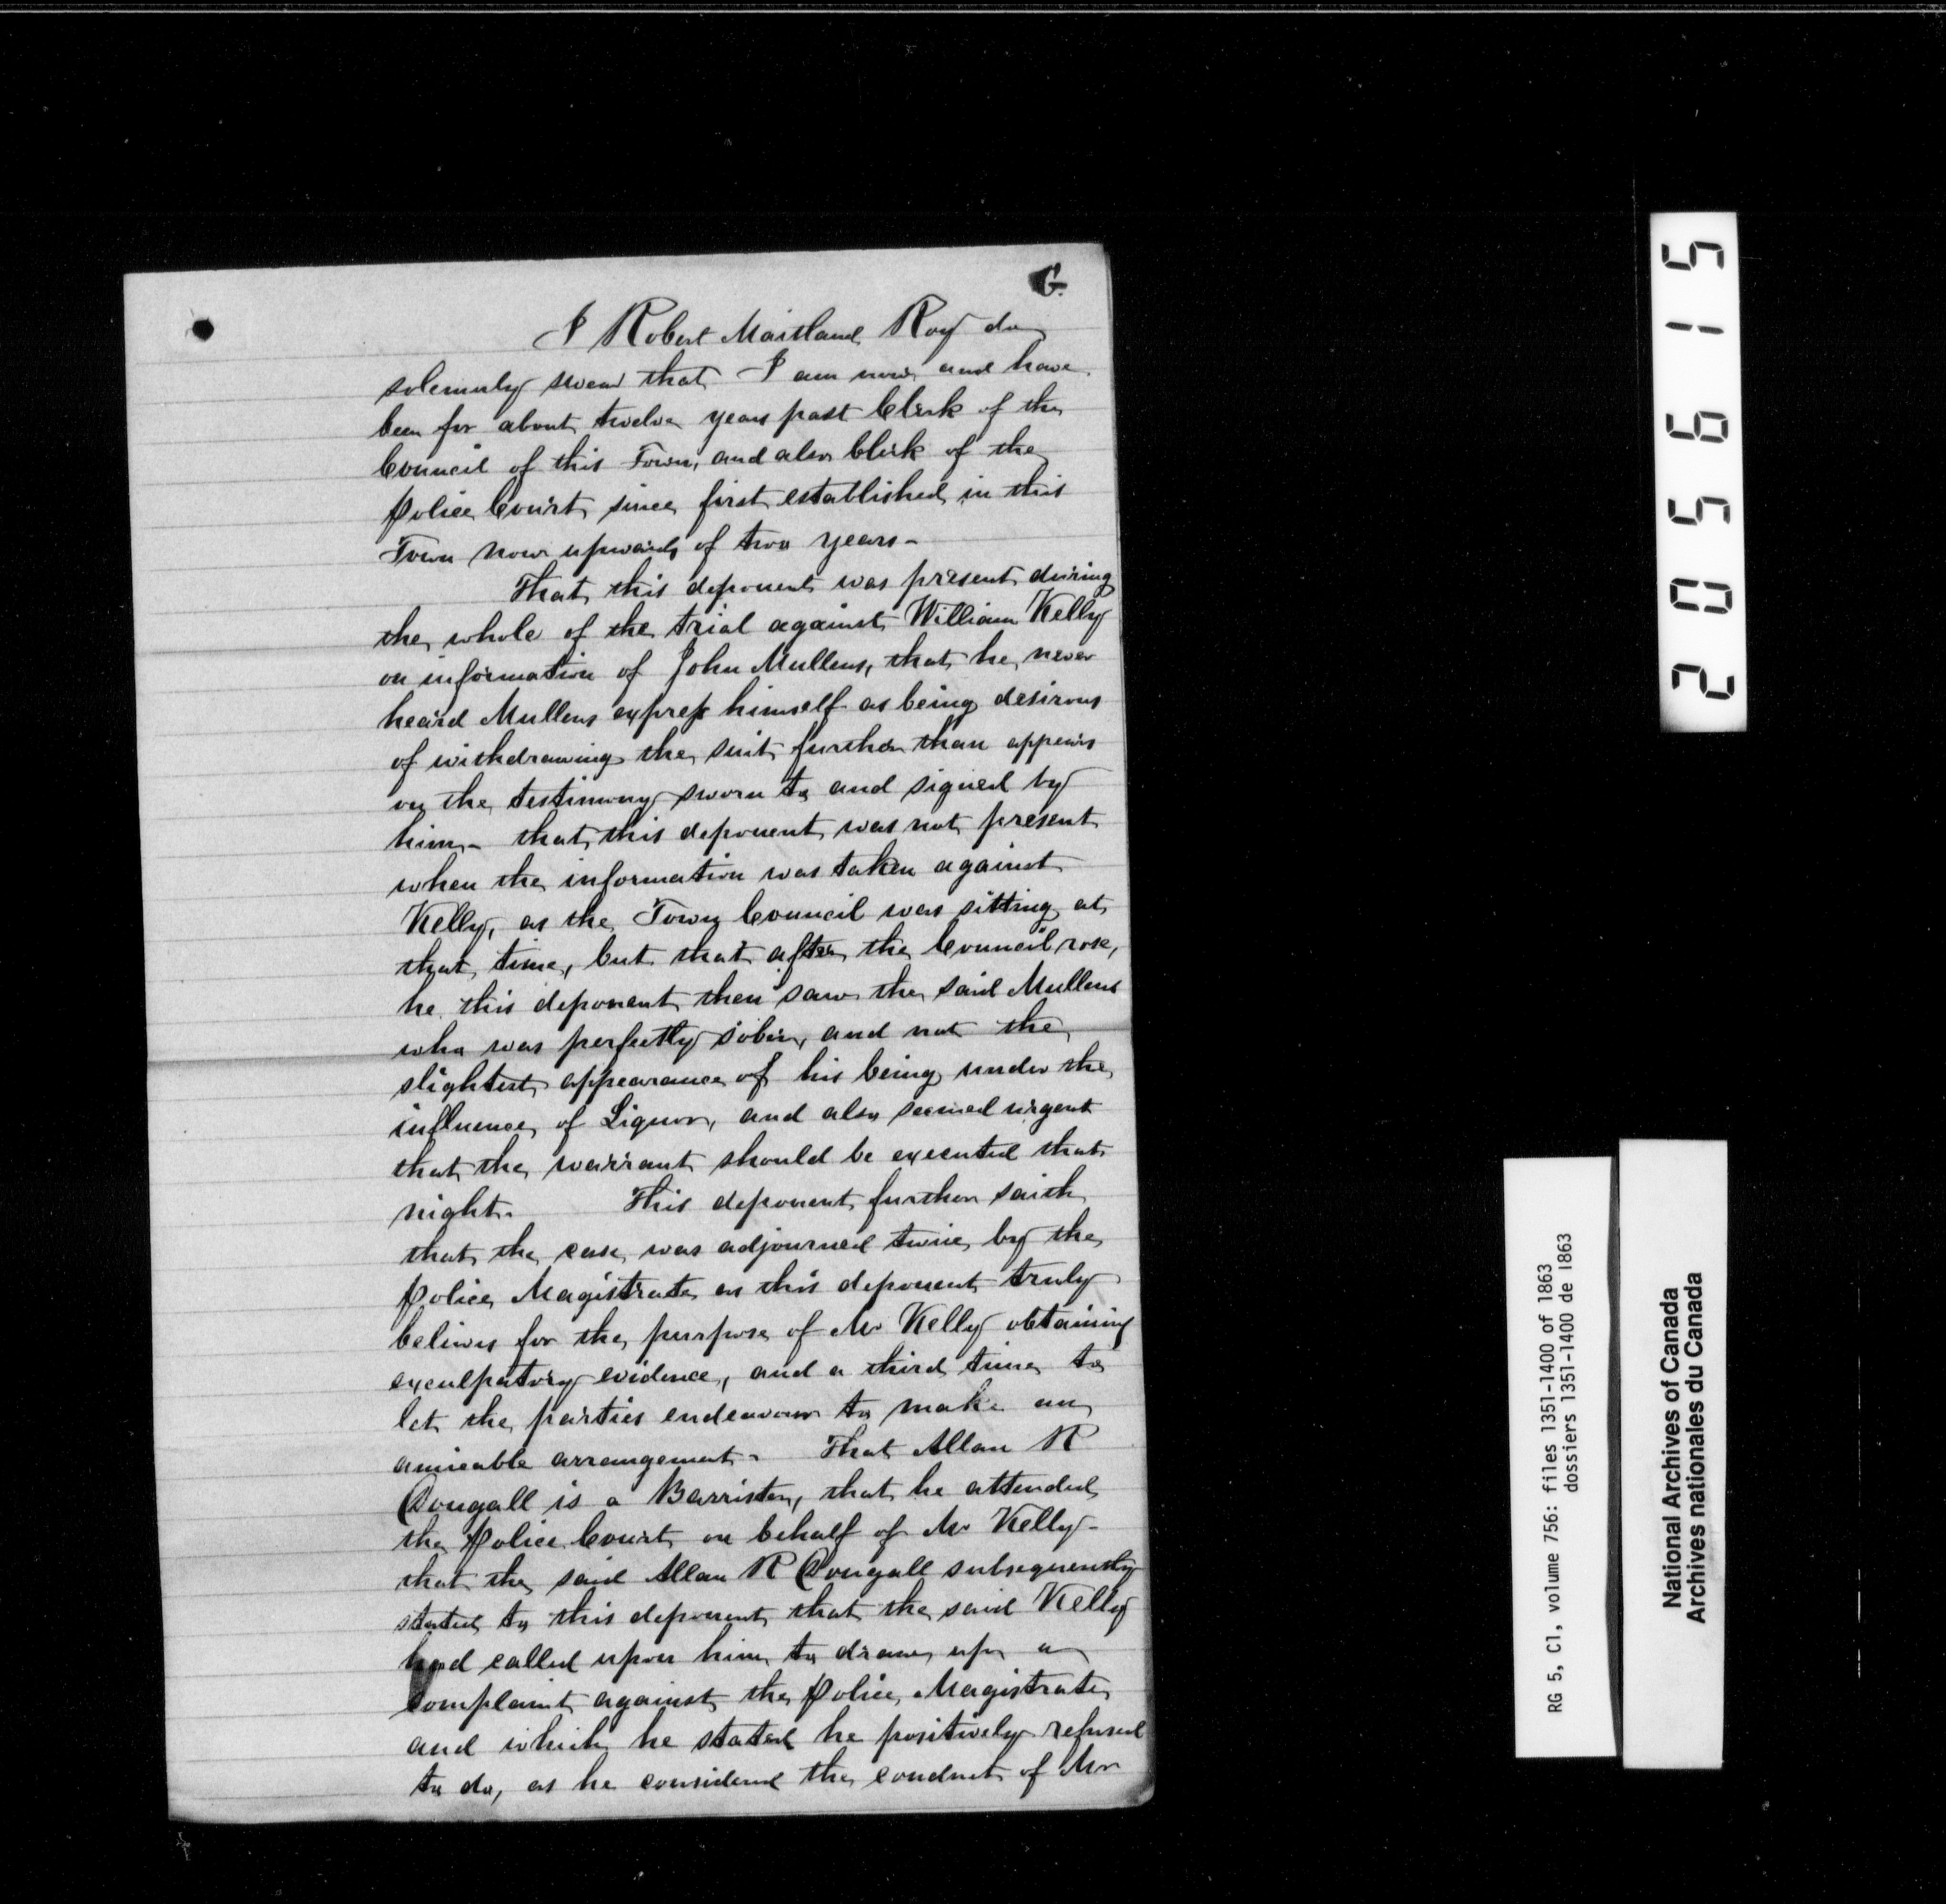 G.
I Robert Maitland Roy do
solemnly swear that I am now and have
been for about twelve years past Clerk of the
Council of this Town, and also Clerk of the
Police Court since first established in this
Town now upwards of two years -
That this deponent was present during
the whole of the trial against William Kelly
on information of John Mullens, that he never
heard Mullens express himself as being desirous
of withdrawing the suit further than appears
on the testimony sworn to and signed by
him - that this deponent was not present
when the information was taken against
Kelly, as the Town Council was sitting at
that time, but that after the Council rose,
he this deponent then saw the said Mullens
who was perfectly sober, and not the
slightest appearance of his being under the
influence of Liquor, and also seemed urgent
that the warrant should be executed that
night. This deponent further saith
that the case was adjourned twice by the
Police Magistrate as this deponent truly
believes for the purpose of Mr Kelly obtaining
exculpatory evidence, and a third time to
let the parties endeavour to make an
amicable arrangement - That Allan R
Dougall is a Barrister, that he attended
the Police Court on behalf of Mr Kelly -
that the said Allan R Dougall subsequently
stated to this deponent that the said Kelly
had called upon him to draw up a
complaint against the Police Magistrate
and which he stated he positively refused
to do, as he considered the conduct of Mr
205615
RG 5, C1, volume 756: files 1351-1400 of 1863
dossiers 1351-1400 de 1863
National Archives of Canada
Archives nationales du Canada